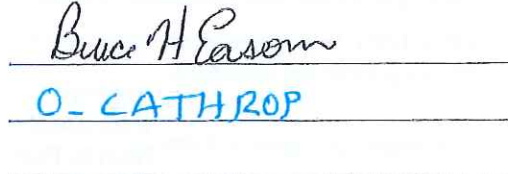 Bruce H Easom
O- CATHROP